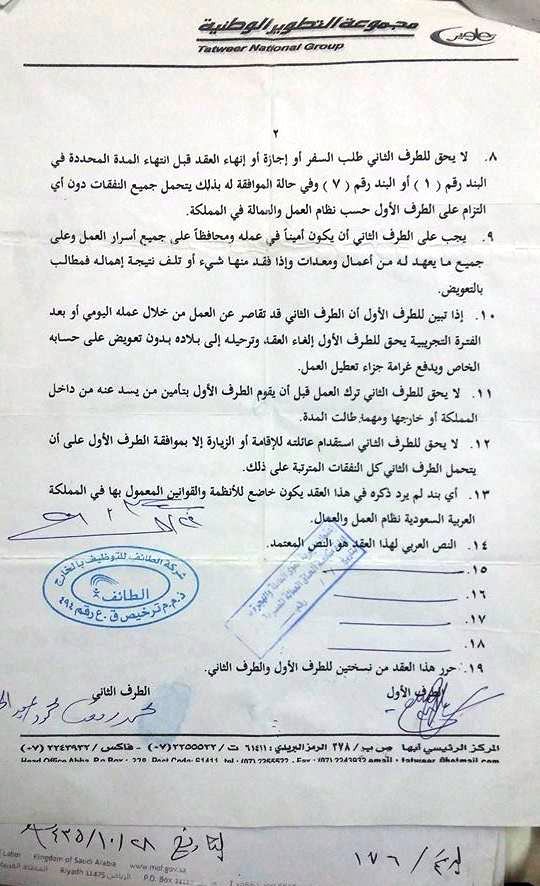 مجموعة التطوير الوطنية
Tatweer National Group
٢
٨. لا يحق للطرف الثاني طلب السفر أو إجازة أو إنهاء العقد قبل انتهاء المدة المحددة في
البند رقم ( ١ ) أو البند رقم ( ٧ ) وفي حالة الموافقة له بذلك يتحمل جميع النفقات دون أي
التزام على الطرف الأول حسب نظام العمل والعمالة في المملكة.
٩. يجب على الطرف الثاني أن يكون أميناً في عمله ومحافظاً على جميع أسرار العمل وعلى
جميع ما يعهد له من أعمال ومعدات وإذا فقد منها شيء أو تلف نتيجة إهماله فمطالب
بالتعويض.
١٠. إذا تبين للطرف الأول أن الطرف الثاني قد تقاصر عن العمل من خلال عمله اليومي أو بعد
الفترة التجريبية يحق للطرف الأول إلغاء العقد وترحيله إلى بلاده بدون تعويض على حسابه
الخاص ويدفع غرامة جزاء تعطيل العمل.
١١. لا يحق للطرف الثاني ترك العمل قبل أن يقوم الطرف الأول بتأمين من يسد عنه من داخل
المملكة أو خارجها ومهما طالت المدة.
١٢. لا يحق للطرف الثاني استقدام عائلته للإقامة أو الزيارة إلا بموافقة الطرف الأول على أن
يتحمل الطرف الثاني كل النفقات المترتبة على ذلك.
١٣. أي بند لم يرد ذكره في هذا العقد يكون خاضع للأنظمة والقوانين المعمول بها في المملكة
العربية السعودية نظام العمل والعمال.
١٤. النص العربي لهذا العقد هو النص المعتمد.
١٥.
١٦.
١٧.
١٨.
شركة الطائف للتوظيف بالخارج
الطائف
ذ.م.م ترخيص ق.ع رقم ٤٩٤
١٩. حرر هذا العقد من نسختين للطرف الأول والطرف الثاني.
الطرف الأول
الطرف الثاني
المركز الرئيسي أبها ص.ب/ ٢٧٨ الرمز البريدي: ٦١٤١١ ت/ ٢٢٥٥٥٢٢ (٠٧) - فاكس/ ٢٢٤٣٩٣٢ (٠٧)
Head Office Abha, P.o Box : 278, Post Code: 61411, tel : (07) 2255522 - Fax: (07) 2243932 email : tatweer@hotmail.com
بتاريخ ٢٨/١٠/١٤٣٥
Labor Kingdom of Saudi Arabia www.mol.gov.sa
Riyadh 11475 الرياض
P.O. Box